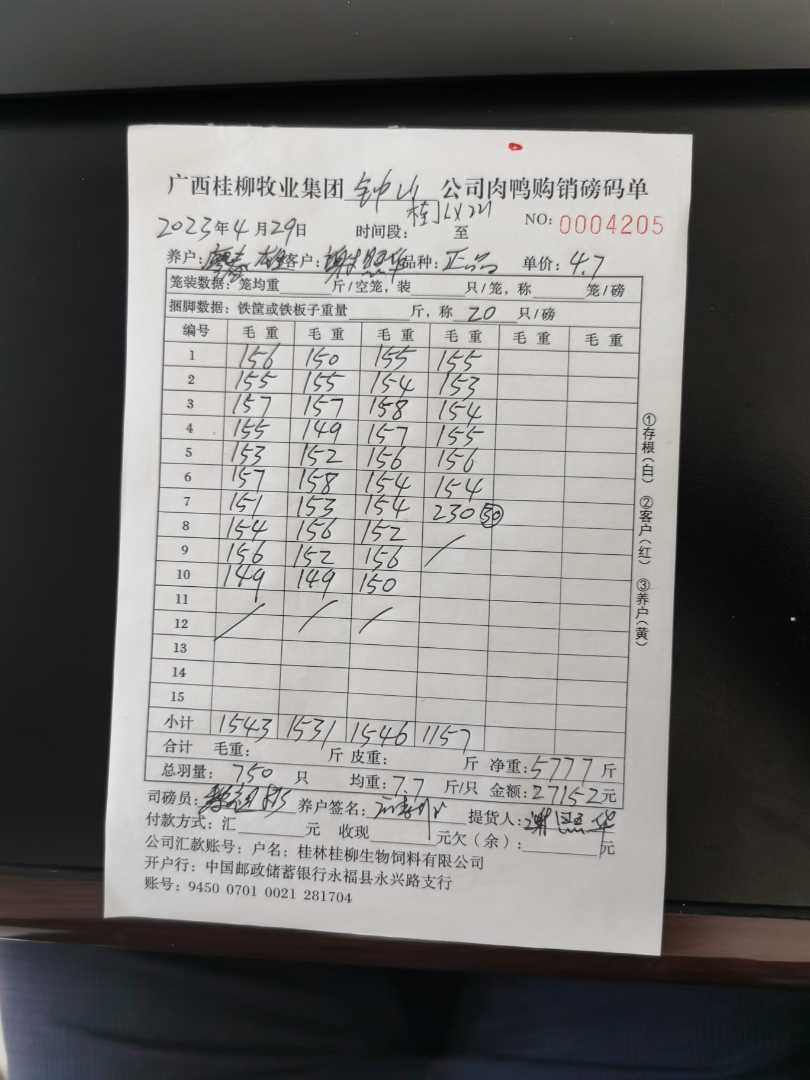 广西桂柳牧业集团 钟山 公司肉鸭购销磅码单
桂
NO: 0004205
2023年4月29日 时间段： 至
养户： 客户： 品种：正品 单价：4.7
笼装数据：笼均重 斤/空笼，装 只/笼，称 笼/磅
捆脚数据：铁筐或铁板子重量 斤，称 20 只/磅
编号 毛重 毛重 毛重 毛重 毛重 毛重
1 156 150 155 155
2 155 155 154 153
3 157 157 158 154
4 155 149 157 155
5 153 152 156 156
6 157 158 154 154
7 151 153 154 230 30
8 154 156 152
9 156 152 156
10 149 149 150
11
12
13
14
15
小计 1543 1531 1546 1157
合计 毛重： 斤 皮重： 斤 净重：5777 斤
总羽量：750 只 均重：7.7 斤/只 金额：27152元
司磅员： 养户签名： 提货人：
付款方式：汇 元 收现 元欠（余）： 元
公司汇款账号：户名：桂林桂柳生物饲料有限公司
开户行：中国邮政储蓄银行永福县永兴路支行
账号：9450 0701 0021 281704
①存根（白） ②客户（红） ③养户（黄）